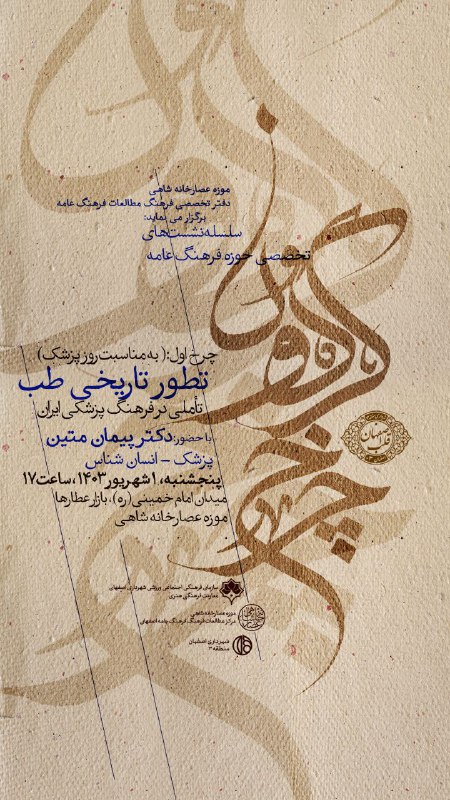 موزه عصارخانه شاهی
دفتر تخصصی فرهنگ مطالعات فرهنگ عامه
برگزار می نماید:
سلسله‌نشست‌های
تخصصی حوزه فرهنگ عامه
چرخ اول:( به مناسبت روز پزشک)
تطور تاریخی طب
تأملی در فرهنگ پزشکی ایران
با حضور: دکتر پیمان متین
پزشک - انسان شناس
پنجشنبه، ۱شهریور ۱۴۰۳، ساعت ۱۷
میدان امام خمینی(ره)، بازار عطارها
موزه عصارخانه شاهی
قلب اصفهان
سازمان فرهنگی اجتماعی ورزشی شهرداری اصفهان
معاونت فرهنگی هنری
موزه عصارخانه شاهی
مرکز مطالعات فرهنگ، فرهنگ عامه اصفهان
شهرداری اصفهان
منطقه ۳